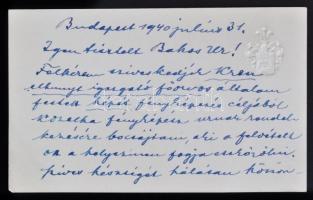 Budapest 1940 július 31.
Igen tisztelt Bakos Ur!
Felkérem szíveskedjék Kren
elhunyt igazgató főorvos általam
festett képét fényképezés céljából
fényképész urnak rendel-
kezésére bocsájtani, aki a felvételt
ott a helyszinen fogja eszközölni.
szíves készségét hálásan köszön-